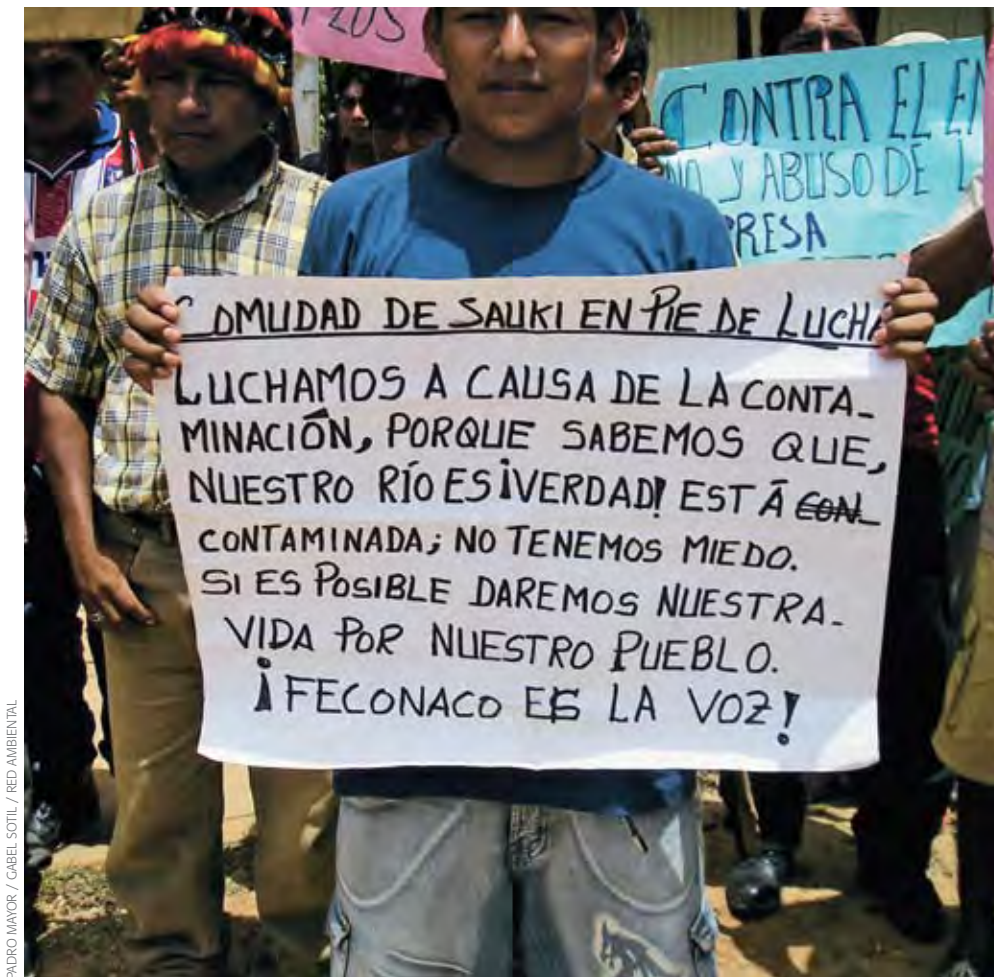 CONTRA EL
Y ABUSO DE
COMUDAD DE SAUKI EN PIE DE LUCHA
LUCHAMOS A CAUSA DE LA CONTA-
MINACIÓN, PORQUE SABEMOS QUE,
NUESTRO RÍO ES ¡VERDAD! ESTÁ CON
CONTAMINADA; NO TENEMOS MIEDO.
SI ES POSIBLE DAREMOS NUESTRA-
VIDA POR NUESTRO PUEBLO.
¡FECONACO ES LA VOZ!
PADRO MAYOR / GABEL SOTIL / RED AMBIENTAL